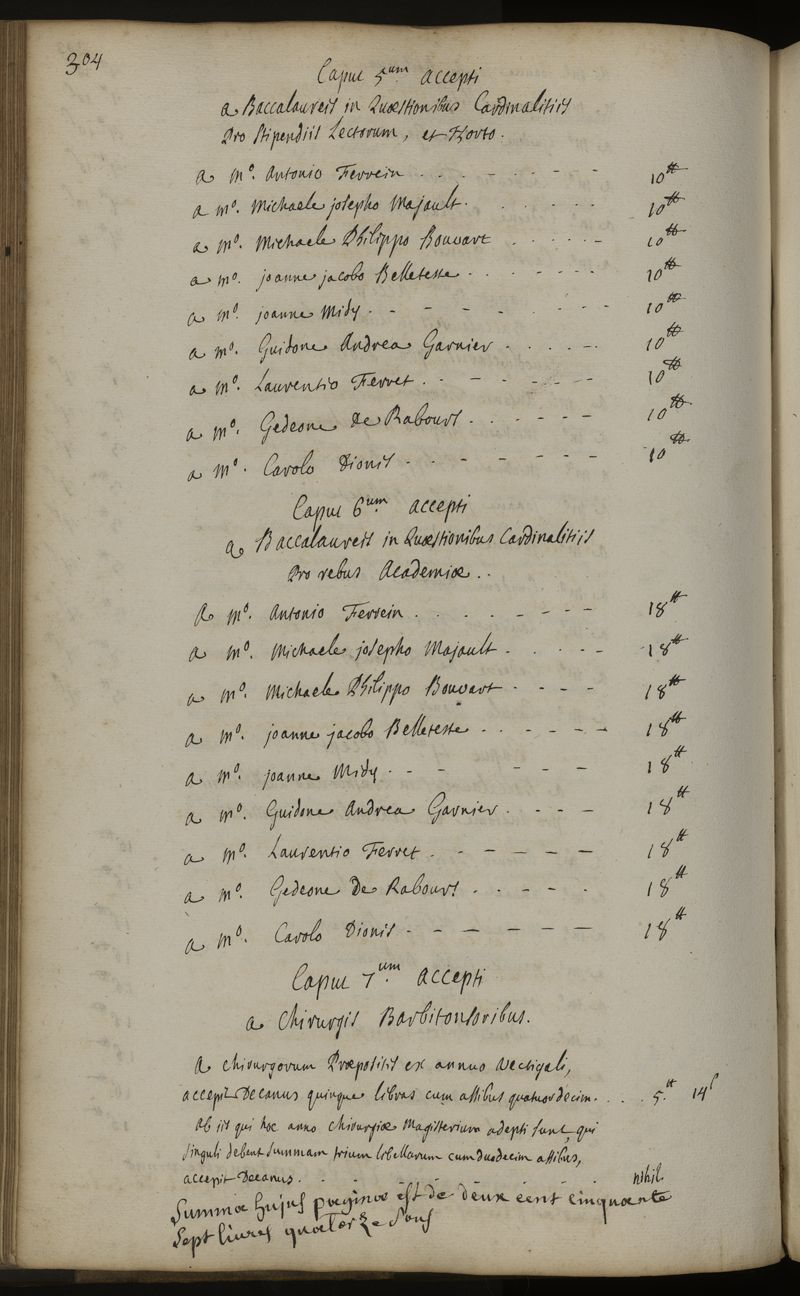 304
Caput 5um accepti
a Baccalaureis in Quæstionibus Cardinalitiis
Pro stipendiis Lectorum, et Horto.
a mo. Antonio Ferrein . . . . - - - - 10tt
a mo. Michaele josepho Majault . . . . . . 10tt
a mo. Michaele Philippo Bouvart . . . . . - 10tt
a mo. joanne jacobo Belleteste . . . - - - - 10tt
a mo. joanne Midy . - - - - . - - - 10tt
a mo. Guidone Andrea Garnier . . . . - 10tt
a mo. Laurentio Ferret . . - - - - - 10tt
a mo. Gedeone De Rabours . . . - - - 10tt
a mo. Carolo Dionis . . - - - - - 10tt
Caput 6um accepti
a Baccalaureis in Quæstionibus Cardinalitiis
Pro rebus Academiæ . .
A mo. Antonio Ferrein . . . . - - - - 18tt
a mo. Michaele josepho Majault . . . . - 18tt
a mo. Michaele Philippo Bouvart . - - - 18tt
a mo. joanne jacobo Belleteste . . - - - - 18tt
a mo. joanne Midy . - - - - - 18tt
a mo. Guidone Andrea Garnier . - - - 18tt
a mo. Laurentio Ferret . - - - - - 18tt
a mo. Gedeone De Rabours . . - - . 18tt
a mo. Carolo Dionis - - - - - - 18tt
Caput 7um accepti
a Chirurgis Barbitonsoribus.
A chirurgorum Præpositis ex annuo vectigali,
accepit Decanus quinque libras cum assibus quatuordecim . . . . 5.tt 14s
Ab iis qui hoc anno chirurgiæ Magisterium adepti sunt, qui
singuli debent summam trium libellarum cum duodecim assibus,
accepit Decanus . . . . . . . nihil.
Summa hujus paginæ est de deux cent cinquante
sept livres quatorze sous